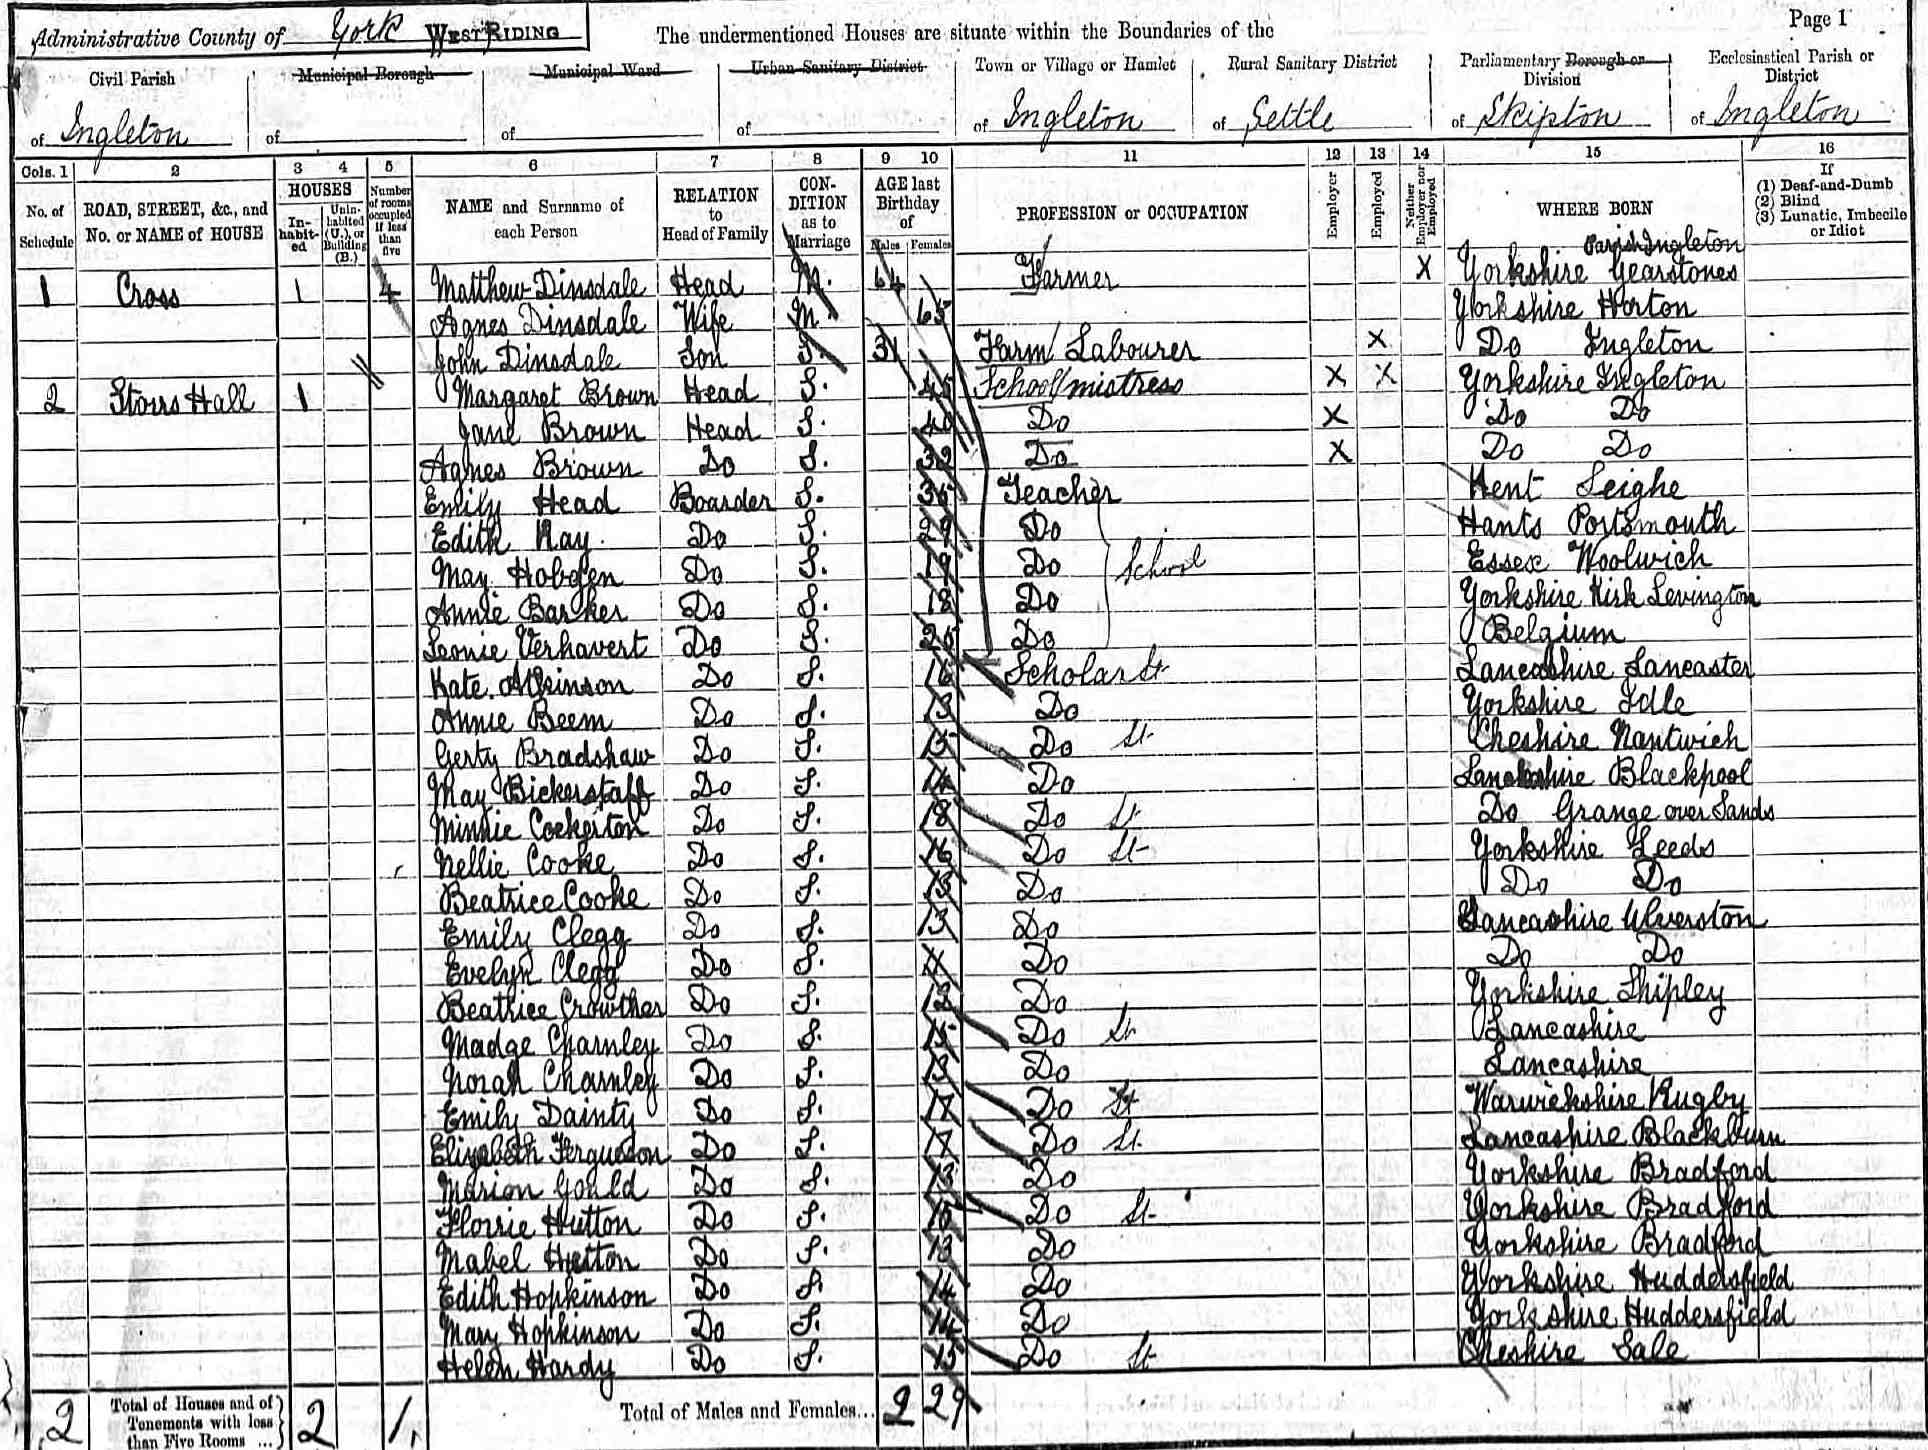 Administrative County of York WEST RIDING The undermentioned Houses are situate within the Boundaries of the Page 1
Civil Parish Municipal Borough Municipal Ward Urban Sanitary District Town or Village or Hamlet Rural Sanitary District Parliamentary Borough or Division Ecclesiastical Parish or District
of Ingleton of of of of Ingleton of Settle of Skipton of Ingleton
Cols. 1 2 3 4 5 6 7 8 9 10 11 12 13 14 15 16
No. of Schedule ROAD, STREET, &c., and No. or NAME of HOUSE HOUSES In-habit-ed Unin-habited (U.), or Building (B.) Number of rooms occupied if less than five NAME and Surname of each Person RELATION to Head of Family CON-DITION as to Marriage AGE last Birthday of Males Females PROFESSION or OCCUPATION Employer Employed Neither Employer nor Employed WHERE BORN If (1) Deaf-and-Dumb (2) Blind (3) Lunatic, Imbecile or Idiot
Parish Ingleton
1 Cross 1 4 Matthew Dinsdale Head M. 64 Farmer X Yorkshire Gearstones
Agnes Dinsdale Wife M 65 Yorkshire Horton
John Dinsdale Son S. 31 Farm Labourer X Do Ingleton
2 Storrs Hall 1 Margaret Brown Head S. 45 School mistress X X Yorkshire Ingleton
Jane Brown Head S. 40 Do X Do Do
Agnes Brown Do S. 39 Do X Do Do
Emily Head Boarder S. 36 Teacher Kent Leighe
Edith Kay Do S. 29 Do Hants Portsmouth
May Hobden Do S. 19 Do School Essex Woolwich
Annie Barker Do S. 18 Do Yorkshire Kirk Levington
Leonie Verhavert Do S. 25 Do Belgium
Kate Atkinson Do S. 16 Scholar St Lancashire Lancaster
Annie Beem Do S. 13 Do Yorkshire Idle
Gerty Bradshaw Do S. 15 Do St Cheshire Nantwich
May Bickerstaff Do S. 14 Do Lancashire Blackpool
Minnie Cockerton Do S. 18 Do St Do Grange over Sands
Nellie Cooke Do S. 16 Do St Yorkshire Leeds
Beatrice Cooke Do S. 13 Do Do Do
Emily Clegg Do S. 13 Do Lancashire Ulverston
Evelyn Clegg Do S. 11 Do Do Do
Beatrice Crowther Do S. 12 Do Yorkshire Shipley
Madge Charnley Do S. 15 Do St Lancashire
Norah Charnley Do S. 13 Do Lancashire
Emily Dainty Do S. 17 Do St Warwickshire Rugby
Elizabeth Ferguson Do S. 17 Do St Lancashire Blackburn
Marion Gould Do S. 13 Do Yorkshire Bradford
Florrie Hutton Do S. 15 Do St Yorkshire Bradford
Mabel Hutton Do S. 13 Do Yorkshire Bradford
Edith Hopkinson Do S. 14 Do Yorkshire Huddersfield
Mary Hopkinson Do S. 14 Do Yorkshire Huddersfield
Helen Hardy Do S. 15 Do St Cheshire Sale
2 Total of Houses and of Tenements with less than Five Rooms ... 2 1 Total of Males and Females... 2 29